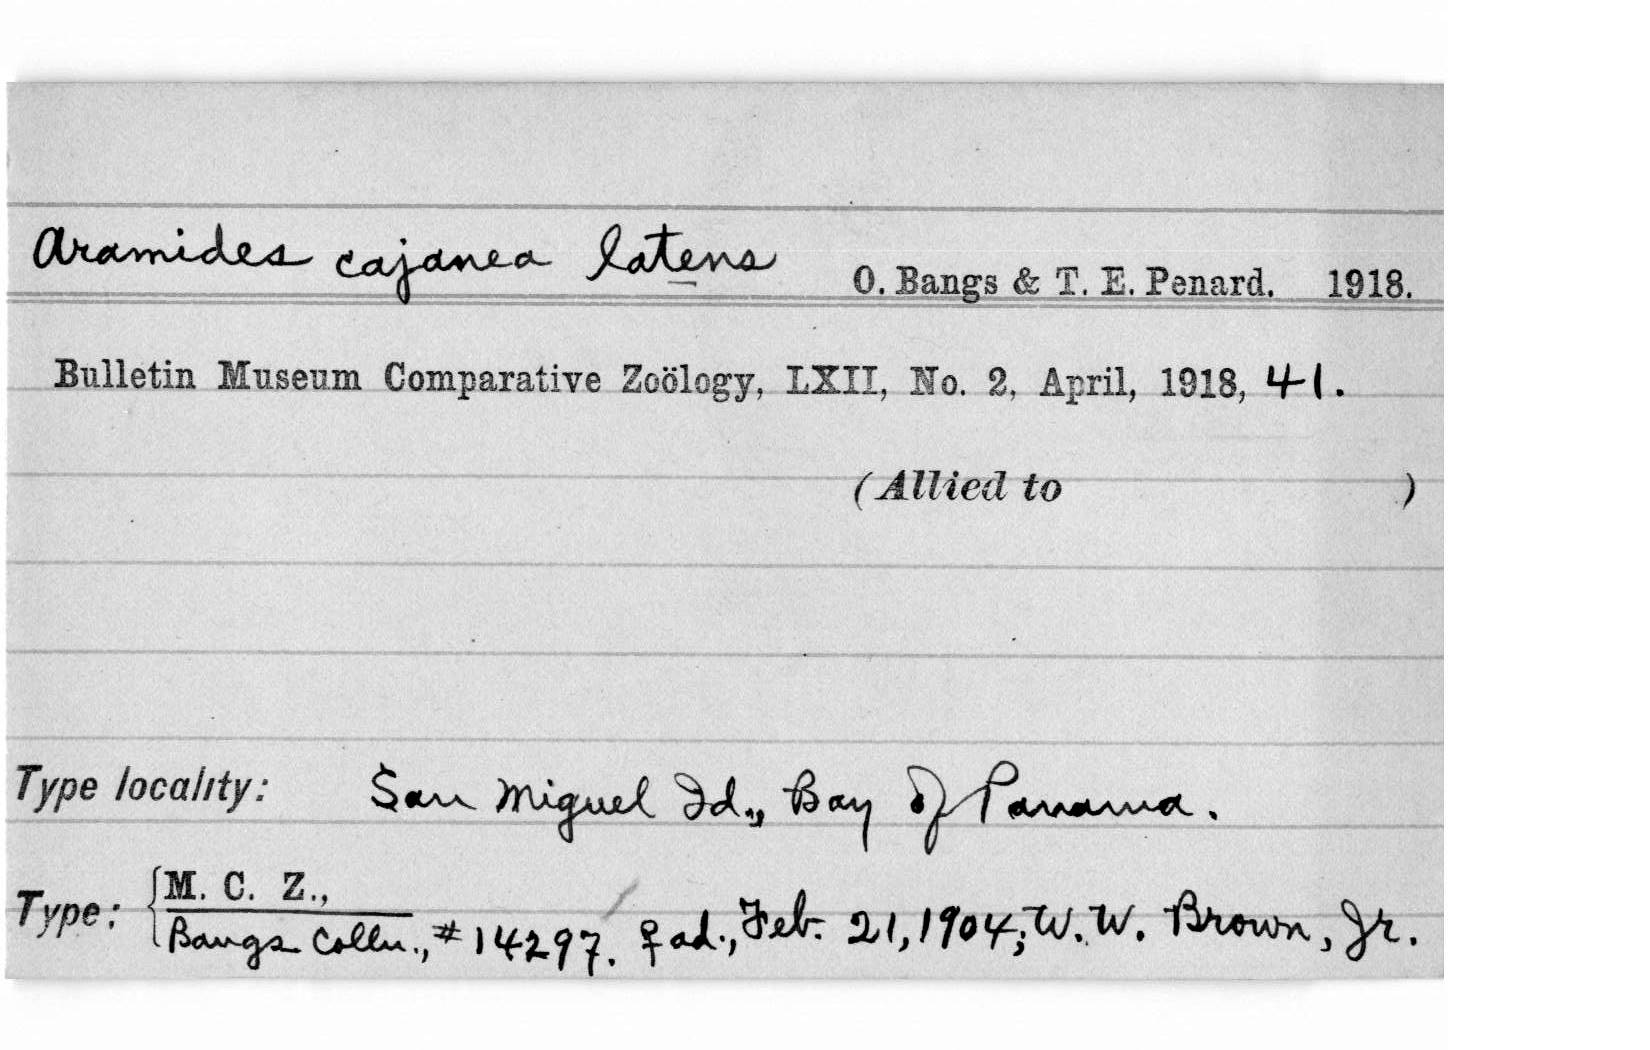 Aramides cajanea latens O. Bangs & T. E. Penard. 1918.
Bulletin Museum Comparative Zoölogy, LXII, No. 2, April, 1918, 41.
(Allied to )
Type locality: San Miguel Id., Bay of Panama.
Type: M. C. Z.,
Bangs Colln., #14297. ♀ ad., Feb. 21, 1904; W. W. Brown, Jr.